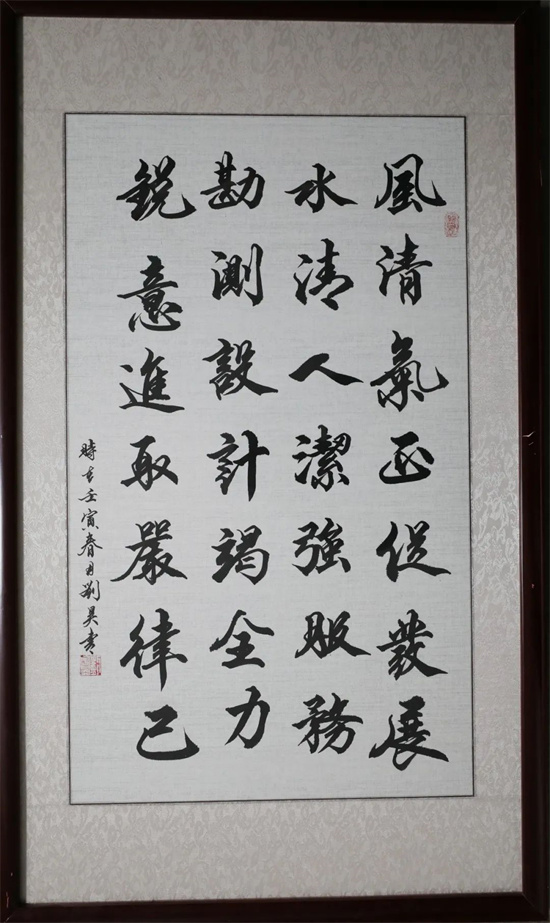 風清氣正促發展
水清人潔強服務
勘測設計竭全力
銳意進取嚴律己
時在壬寅春月劉昊書